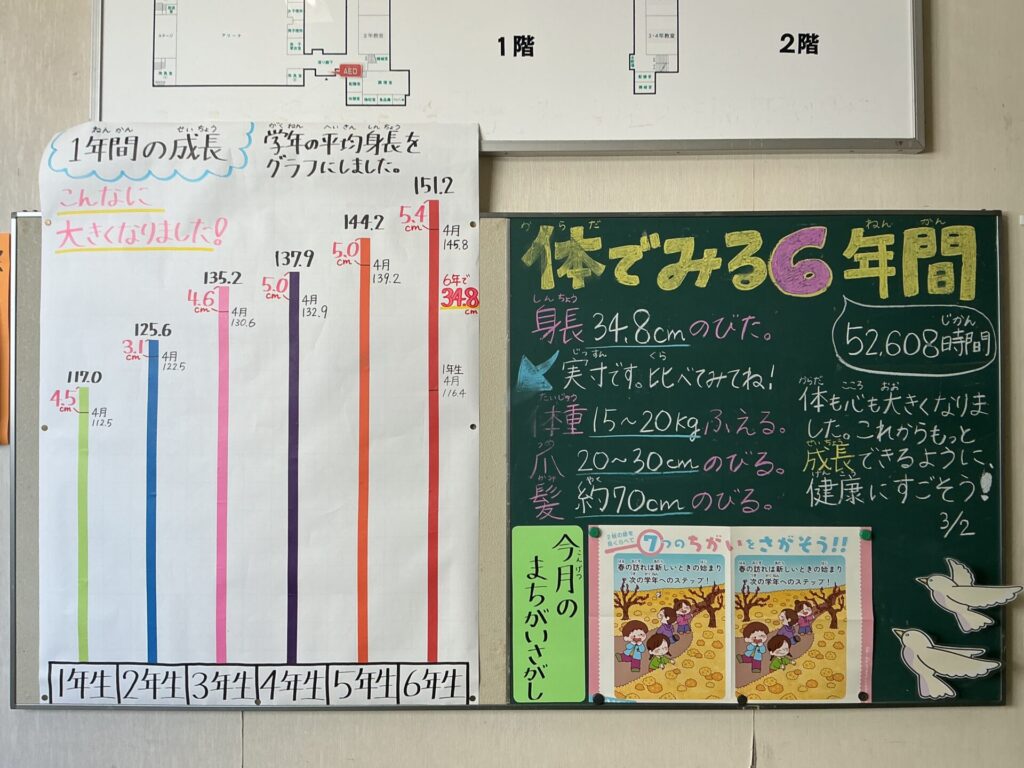 アリーナ
AED
1階
3・4年教室
2階
1年間の成長
ねんかん
せいちょう
学年の平均身長を
グラフにしました。
こんなに
大きくなりました!
117.0
4.5cm
4月
112.5
125.6
3.1cm
4月
122.5
135.2
4.6cm
4月
130.6
137.9
5.0cm
4月
132.9
144.2
5.0cm
4月
139.2
151.2
5.4cm
4月
145.8
6年で
34.8cm
1年生
4月
116.4
1年生 2年生 3年生 4年生 5年生 6年生
からだ
ねん かん
体でみる6年間
しんちょう
身長 34.8cmのびた。
じっすん
くら
実寸です。比べてみてね!
たいじゅう
体重 15〜20kgふえる。
つめ
爪 20〜30cmのびる。
かみ
やく
髪 約70cmのびる。
じかん
52.608時間
からだ こころ おお
体も心も大きくなりま
した。これからもっと
せいちょう
成長できるように、
けんこう
健康にすごそう!
3/2
こんげつ
今月の
まちがいさがし
7つのちがいをさがそう!!
春の訪れは新しいときの始まり
次の学年へのステップ!
春の訪れは新しいときの始まり
次の学年へのステップ!